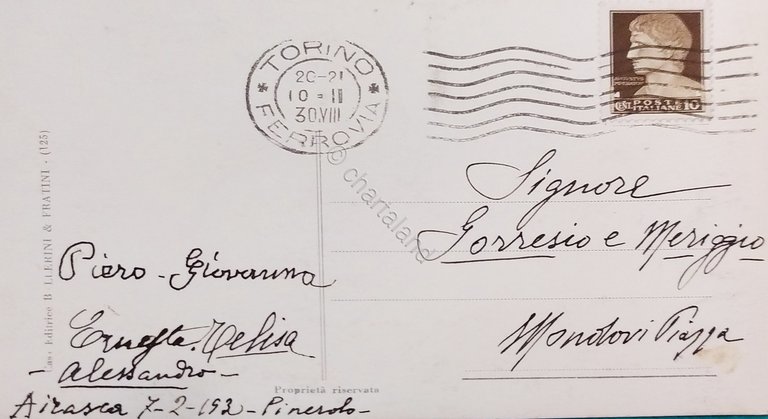 TORINO
20-21
10-II
30.VIII
FERROVIA
AVGVSTVS
1 CENT. POSTE ITALIANE 10
© chartaland
Casa Editrice B LLERINI & FRATINI - (125)
Signore
Gorresio e Meriggio
Piero - Giovanna
Ernesta. Melisa
- Alessandro -
Mondovì Piazza
Proprietà riservata
Airasca 7-2-193 - Pinerolo -